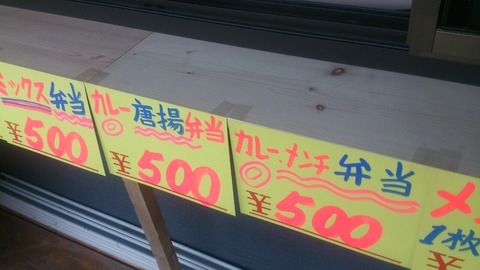 ミックス弁当
¥500
カレー唐揚弁当
¥500
カレーメンチ弁当
¥500
メ
1枚